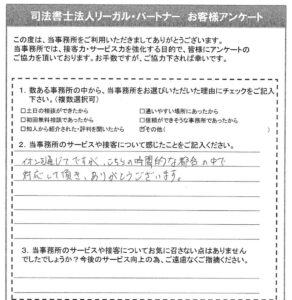 司法書士法人リーガル・パートナー　お客様アンケート
この度は、当事務所をご利用いただきましてありがとうございます。
当事務所では、接客力・サービス力を強化する目的で、皆様にアンケートの
ご協力を頂いております。お手数ですが、ご協力下されば幸いです。
1．数ある事務所の中から、当事務所をお選びいただいた理由にチェックをご記入
下さい。（複数選択可）
□土日の相談ができたから　□通いやすい場所にあったから
□初回無料相談であったから　□信頼ができそうな事務所であったから
□知人から紹介された・評判を聞いたから　☑その他（　）
2．当事務所のサービスや接客について感じたことをご記入下さい。
通じてですが、こちらの時間的な都合の中で
対応して頂き、ありがとうございます。
3．当事務所のサービスや接客についてお気に召さない点はありません
でしたでしょうか？今後のサービス向上の為、ご遠慮なくご指摘ください。